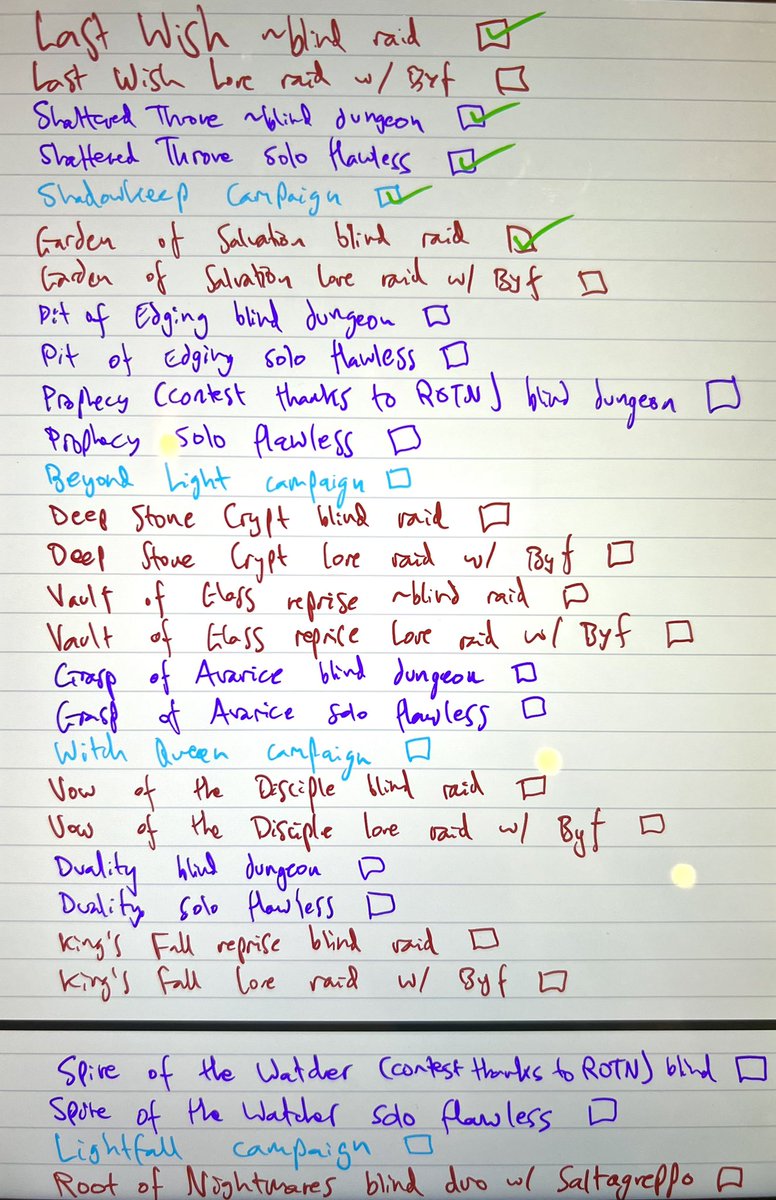 Last Wish ~blind raid
Last Wish Lore raid w/ Byf
Shattered Throne ~blind dungeon
Shattered Throne solo flawless
Shadowkeep campaign
Garden of Salvation blind raid
Garden of Salvation Lore raid w/ Byf
Pit of Edging blind dungeon
Pit of Edging solo flawless
Prophecy (contest thanks to ROTN) blind dungeon
Prophecy solo flawless
Beyond Light campaign
Deep Stone Crypt blind raid
Deep Stone Crypt Lore raid w/ Byf
Vault of Glass reprise ~blind raid
Vault of Glass reprise Lore raid w/ Byf
Grasp of Avarice blind dungeon
Grasp of Avarice solo flawless
Witch Queen campaign
Vow of the Disciple blind raid
Vow of the Disciple Lore raid w/ Byf
Duality blind dungeon
Duality solo flawless
King's Fall reprise blind raid
King's Fall Lore raid w/ Byf
Spire of the Watcher (contest thanks to ROTN) blind
Spire of the Watcher solo flawless
Lightfall campaign
Root of Nightmares blind duo w/ Saltagreppo